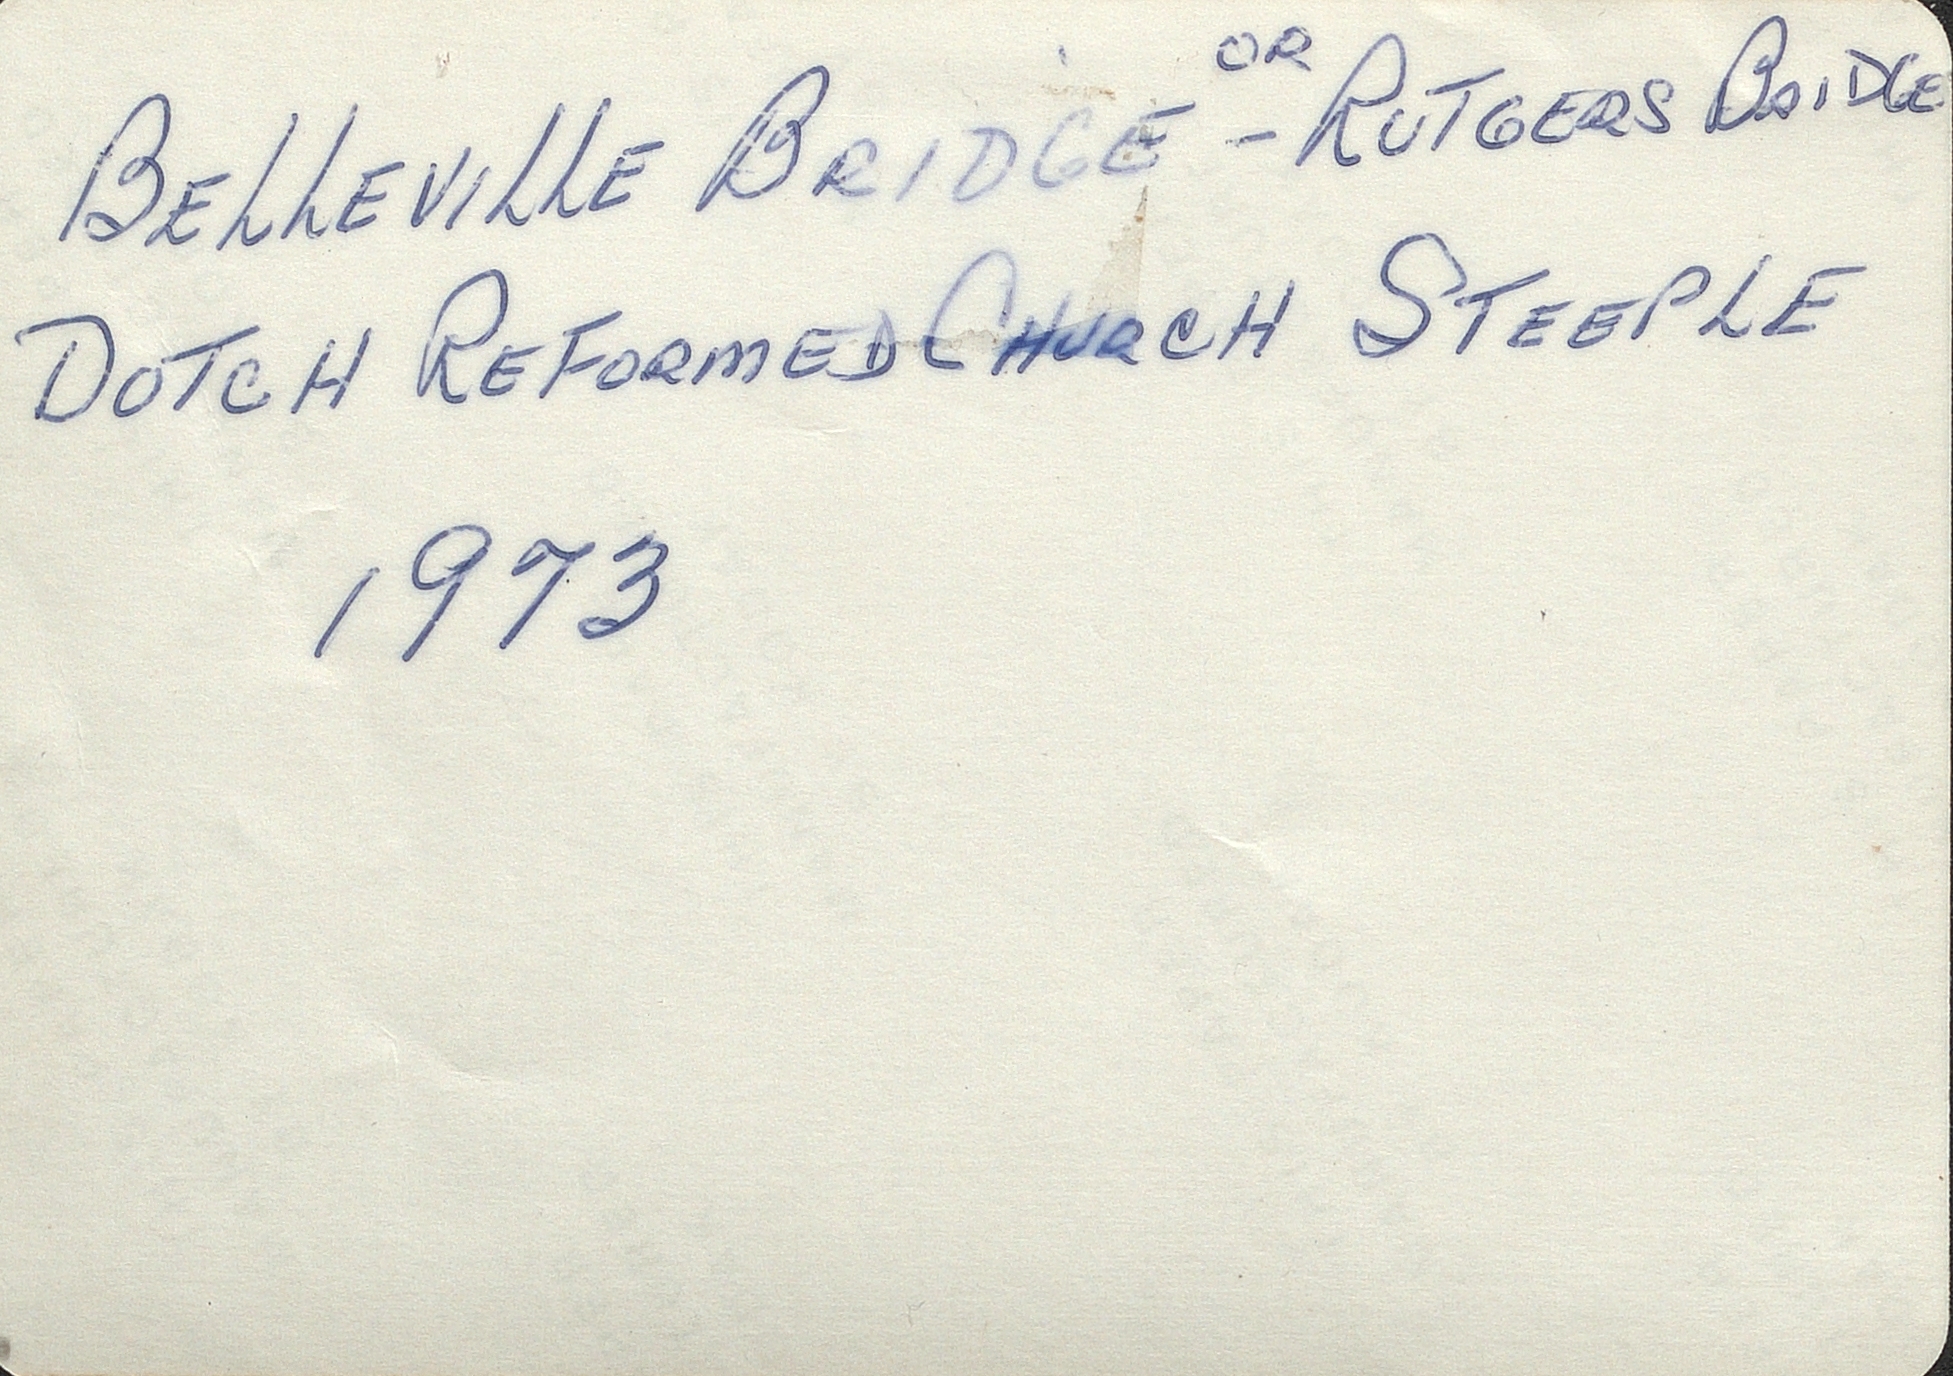 BELLEVILLE BRIDGE - OR RUTGERS BRIDGE
DOTCH REFORMED CHURCH STEEPLE
1973